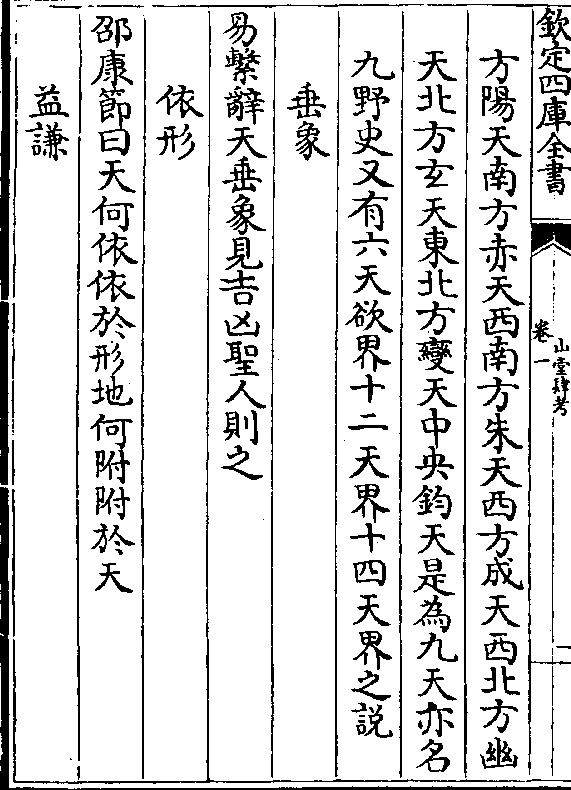 欽定四庫全書
山堂肆考
卷一
方陽天南方赤天西南方朱天西方成天西北方幽
天北方玄天東北方變天中央鈞天是為九天亦名
九野史又有六天欲界十二天界十四天界之説
垂象
易繫辭天垂象見吉凶聖人則之
依形
邵康節曰天何依依於形地何附附於天
益謙